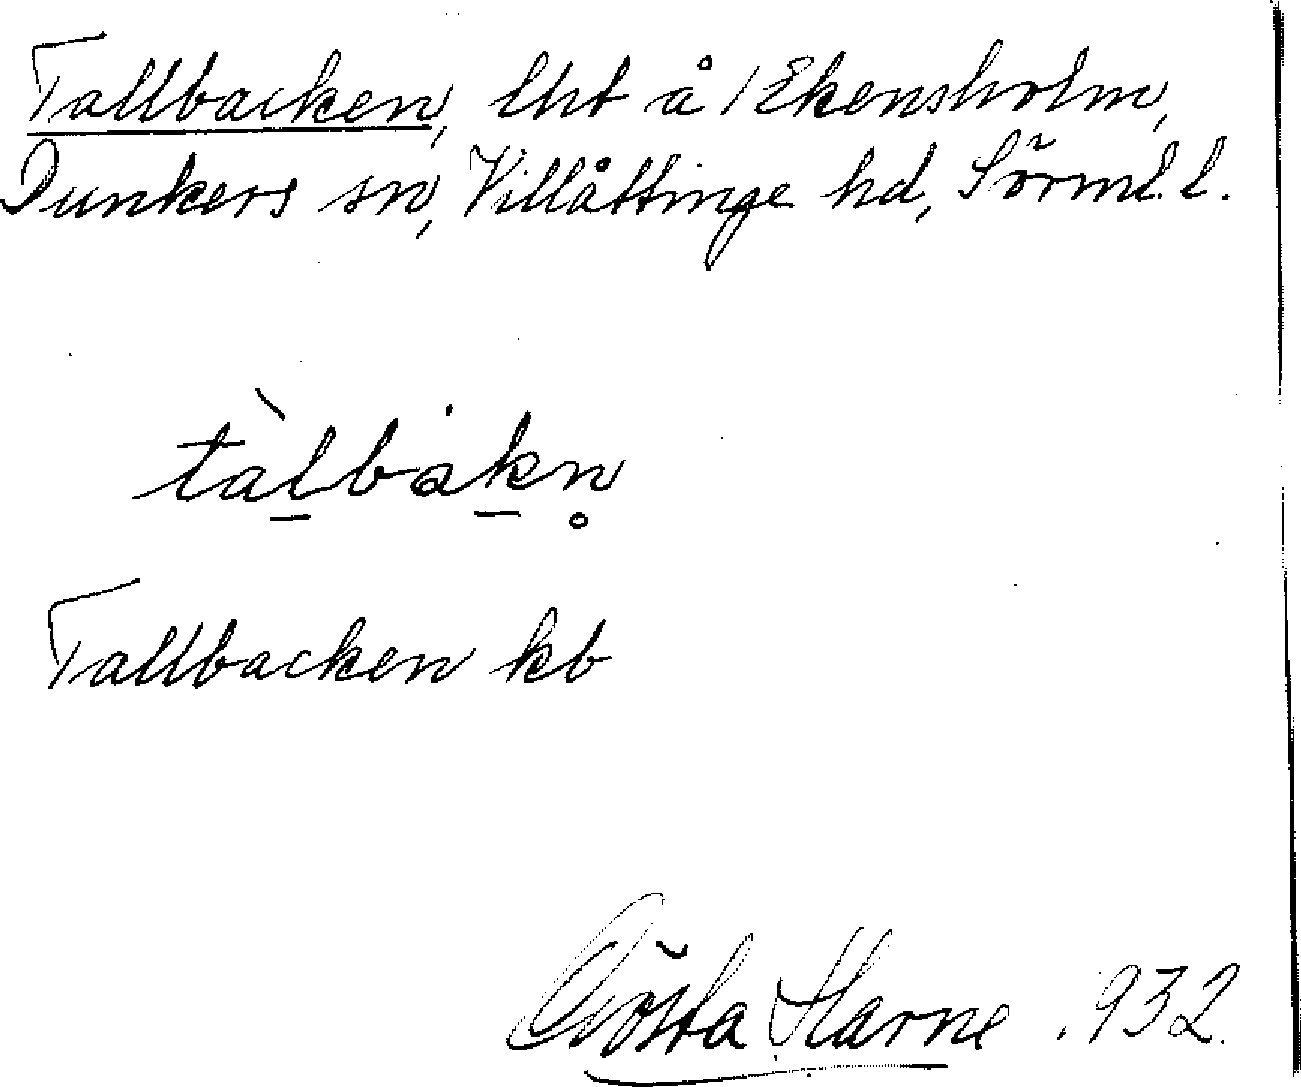 Tallbacken, lht å Ekensholm,
Dunkers sn, Villåttinge hd, Sörml. l.
tàl̠båk̠n̥
Tallbacken kb
Gösta Harne .932.